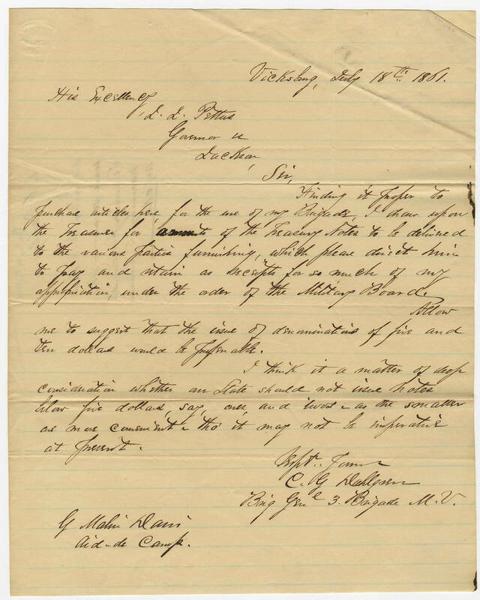 Vicksburg, July 18th 1861.
His Excellency
J. J. Pettus
Governor &c
Jackson
Sir,
Finding it proper to
purchase articles here, for the use of my Brigade, I draw upon
the Treasurer for amounts of the Treasury Notes to be delivered
to the various parties furnishing, which please direct him
to pay and retain as receipts for so much of my
appropriation, under the order of the Military Board.
Allow
me to suggest that the issue of denominations of five and
ten dollars would be preferable.
I think it a matter of deep
consideration whether our State should not issue notes
below five dollars, say, ones, and twos - as the smaller
are more convenient - tho' it may not be imperative
at present.
Respt. Yours
C. G. Dahlgren
Brig Genl 3. Brigade M. V.
G Malin Davis
Aid-de Camp.